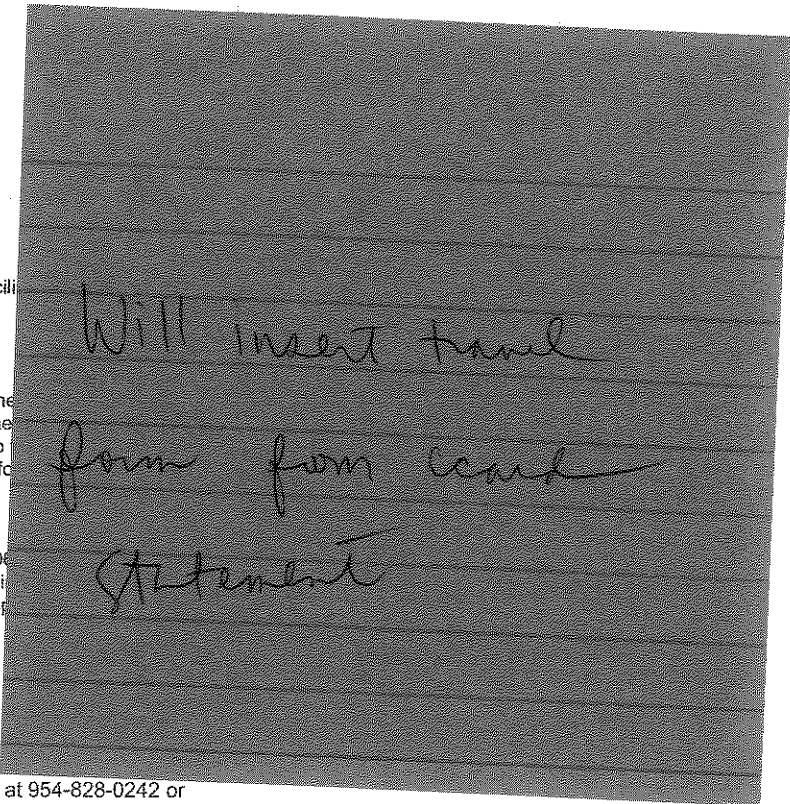 cili
Will insert travel
form from ccard
Statement
at 954-828-0242 or